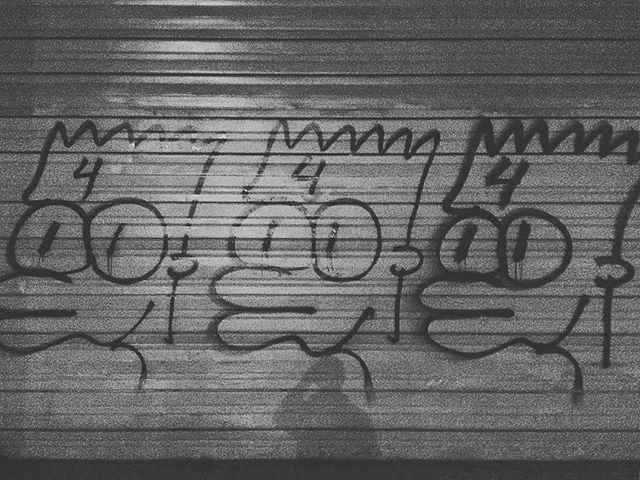 4 4 4